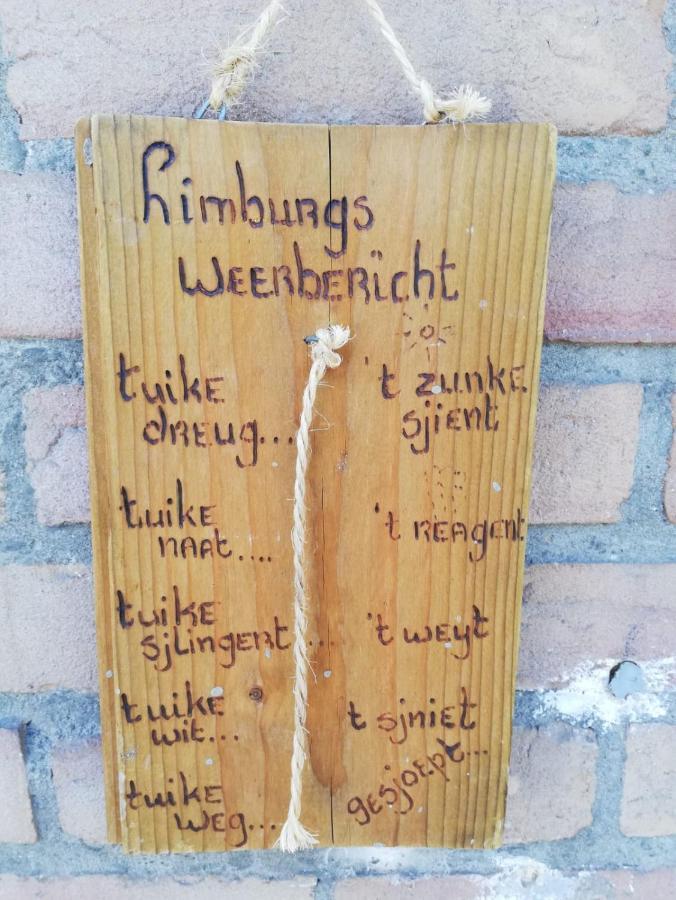 Limburgs
weerbericht
tuike
dreug... 't zunke
sjient
tuike
naat.... 't reagent
tuike
sjlingert.... 't weyt
tuike
wit... t sjniet
tuike
weg... gesjoept...